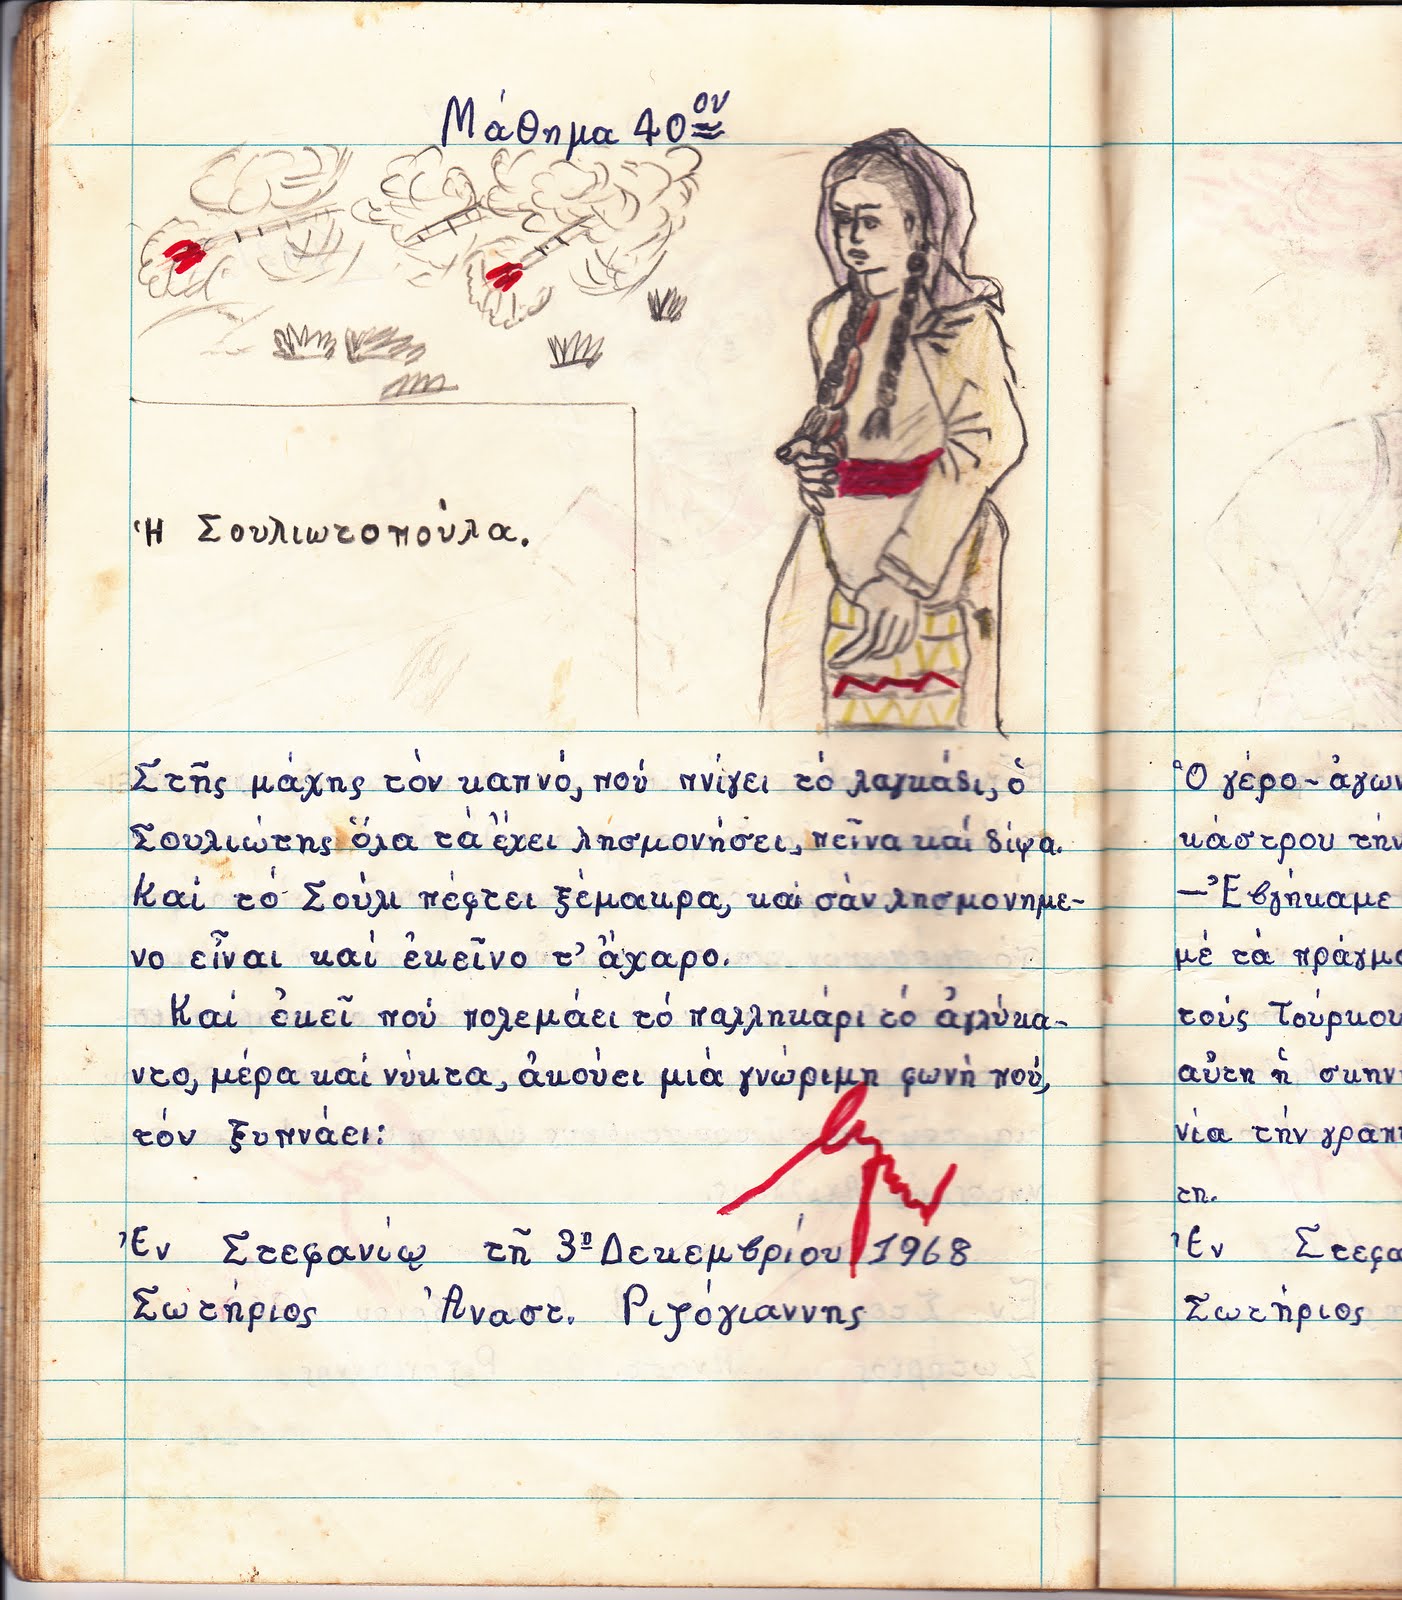 Μάθημα 40ον
Ἡ Σουλιωτοπούλα.
Στῆς μάχης τόν καπνό, πού πνίγει τό λαγκάδι, ὁ
Σουλιώτης ὅλα τά ἔχει λησμονήσει, πεῖνα καί δίψα.
Καί τό Σούλι πέφτει ξέμακρα, καί σάν λησμονημε-
νο εἶναι καί ἐκεῖνο τ' ἄχαρο.
Καί ἐκεῖ πού πολεμάει τό παλληκάρι τό ἀγλύκα-
ντο, μέρα καί νύκτα, ἀκούει μιά γνώριμη φωνή πού,
τόν ξυπνάει:
Ἐν Στεφανίῳ τῇ 3η Δεκεμβρίου 1968
Σωτήριος Ἀναστ. Ριζόγιαννης
Ὁ γέρο-ἀγων
κάστρου τήν
—Ἐβγήκαμε
μέ τά πράγμα
τούς Τούρκου
αὔτη ἡ σκην
νία τήν γραπ
τη.
Ἐν Στεφα
Σωτήριος